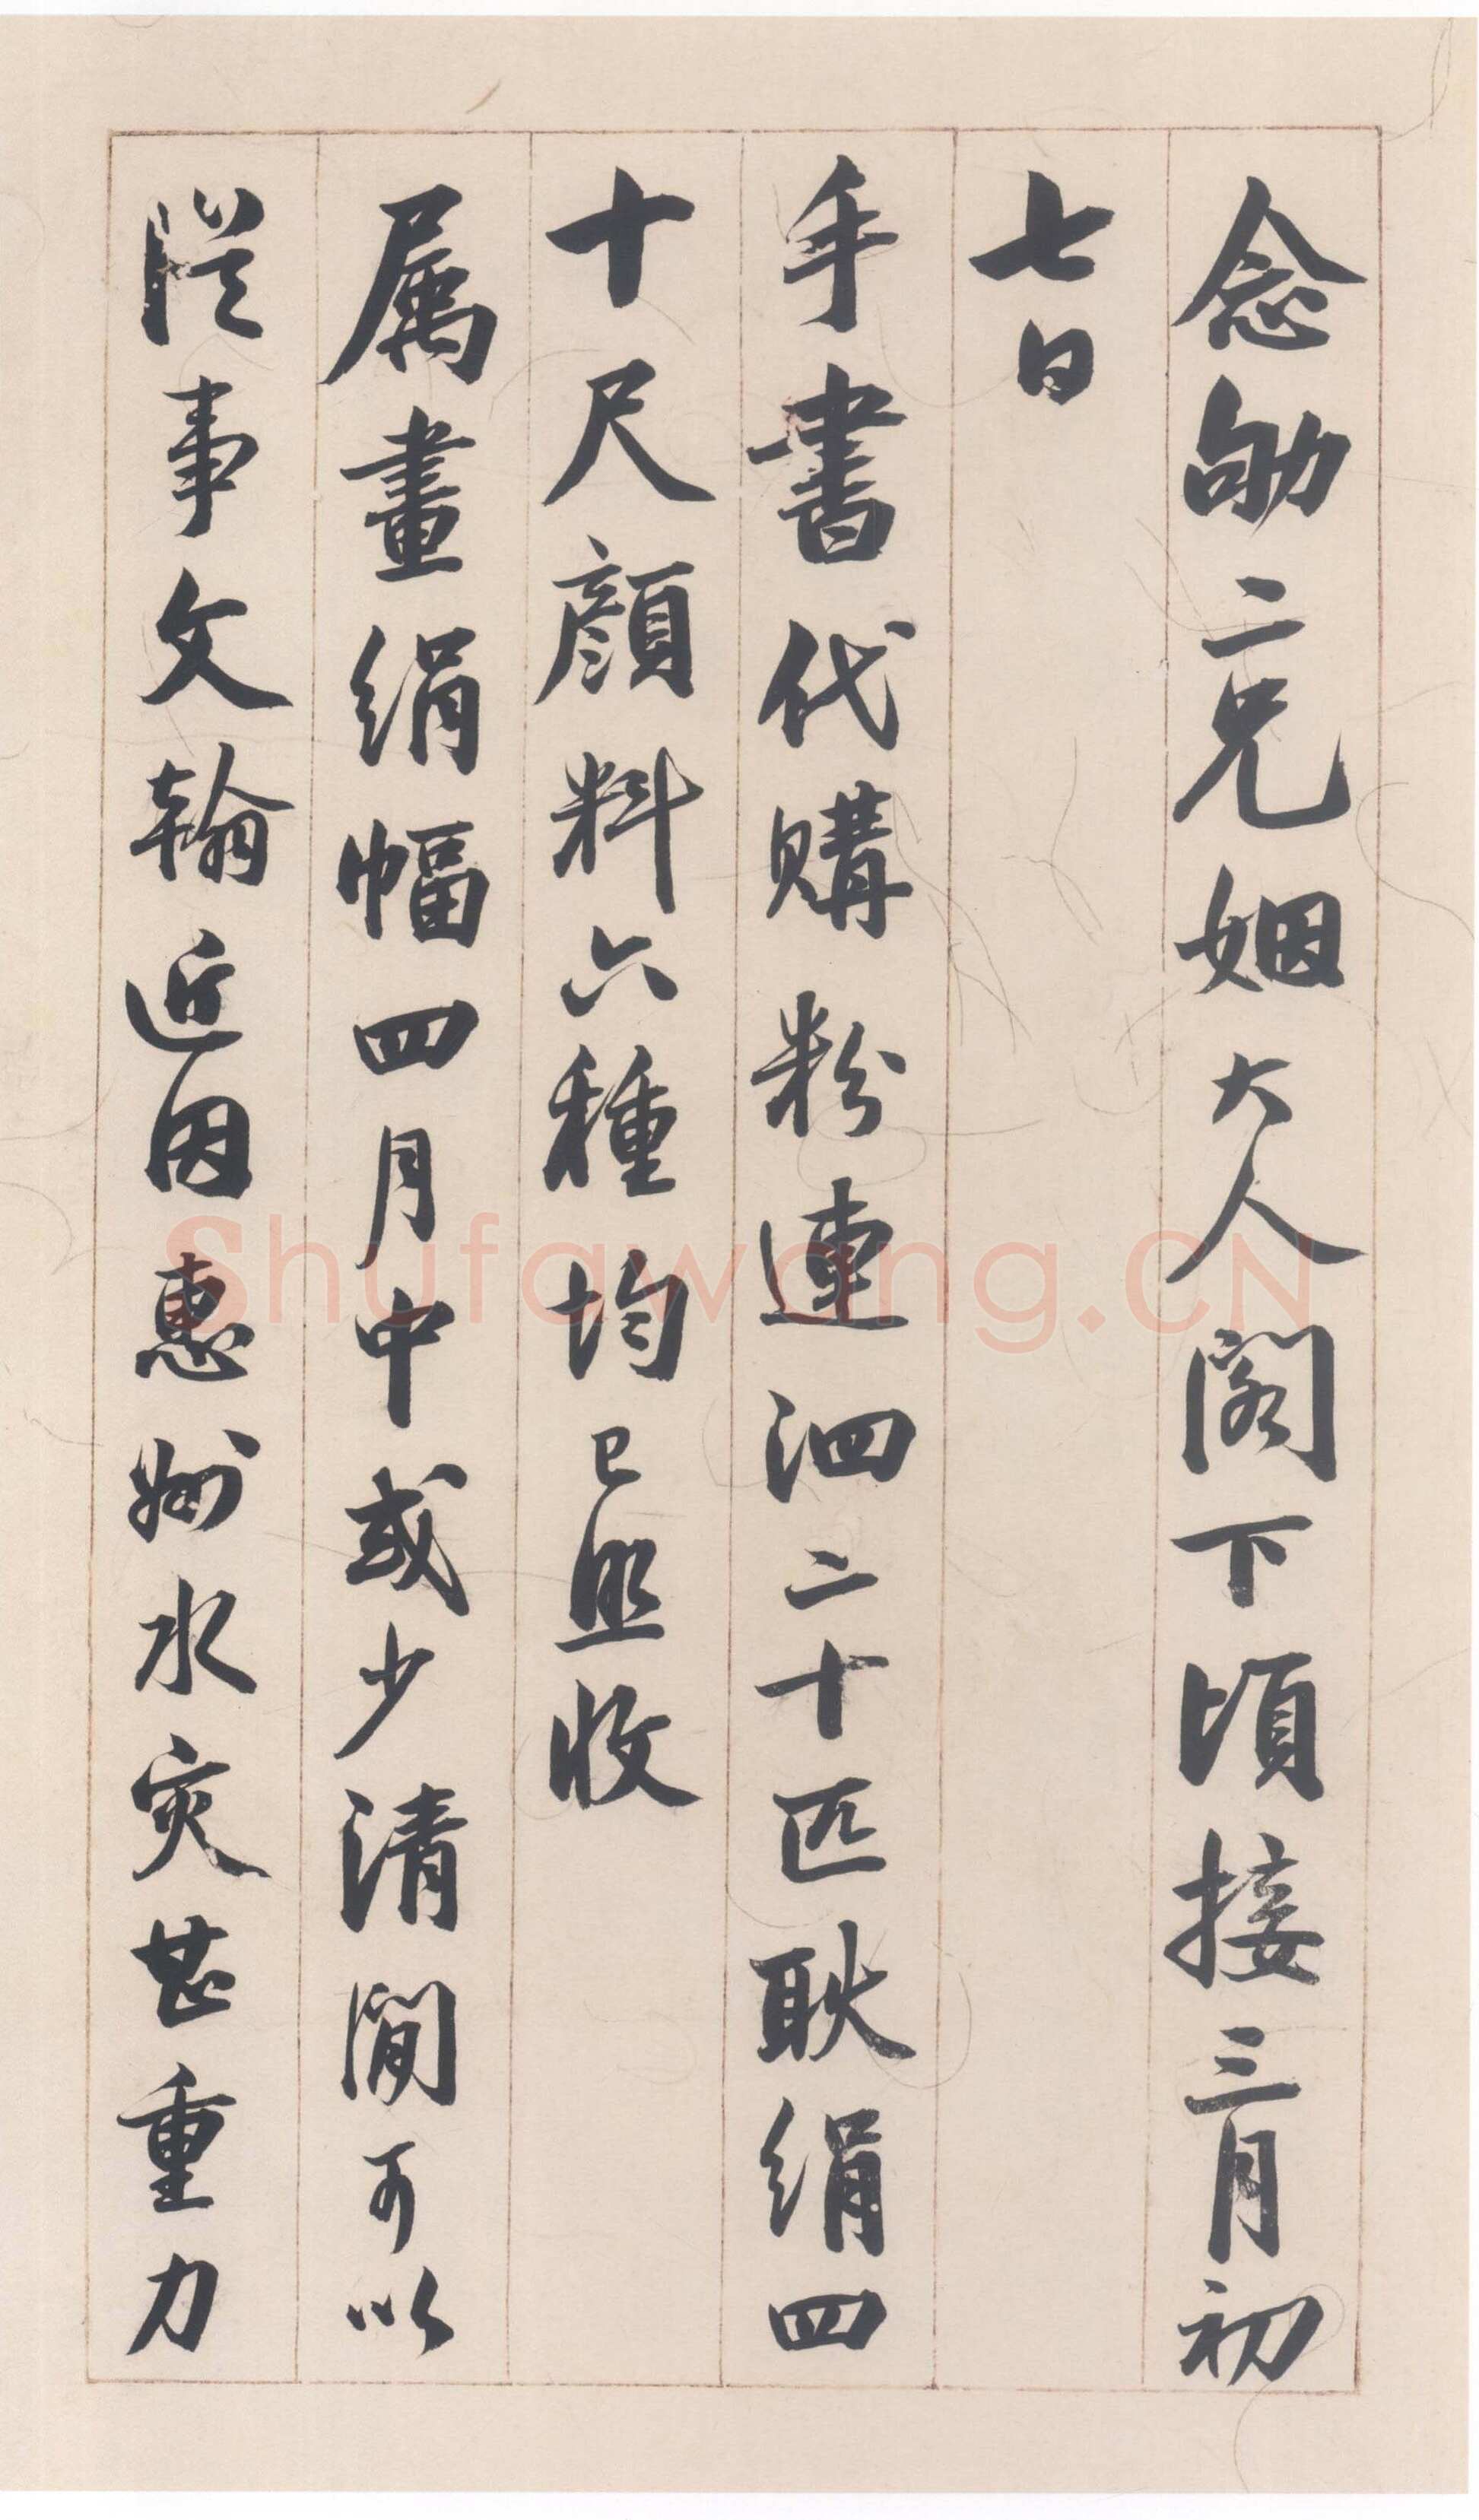 念劬二兄姻大人閣下頃接三月初
七日
手書代購粉連泗二十匹耿絹四
十尺顔料六種均已照收
属畫絹幅四月中或少清閒可以
從事文翰近因惠州水灾甚重力
Shufawang.CN